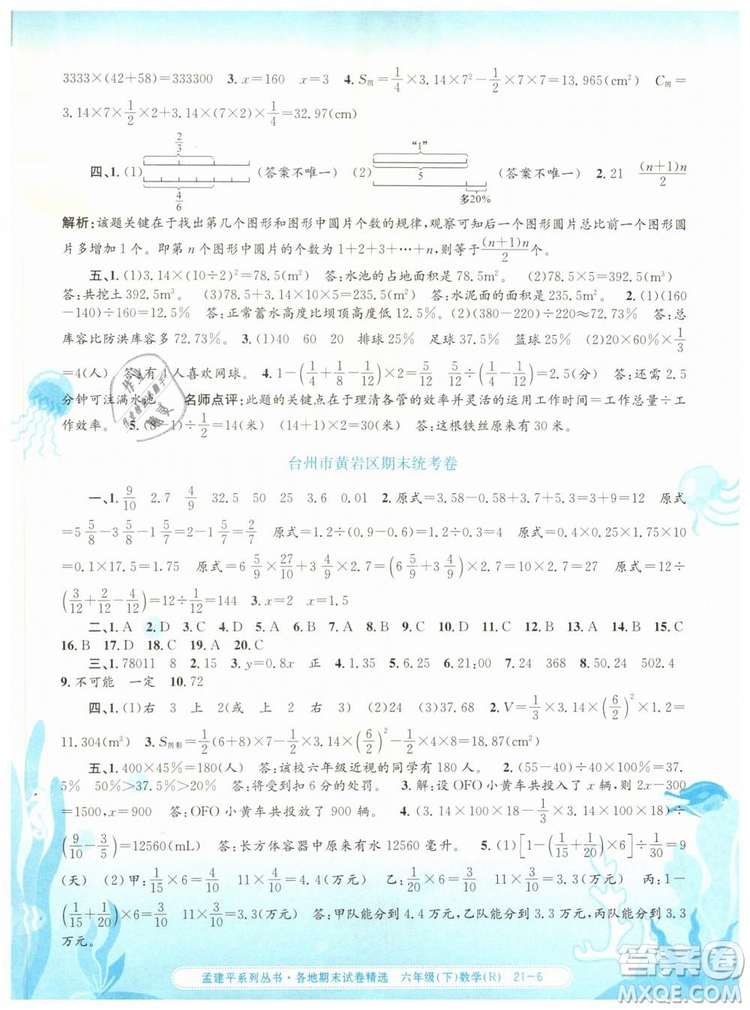 3333×(42+58)=333300  3. x=160  x=3  4. S图=1/4×3.14×7²−7×7×1/2=13.965(cm²)  C图=
3.14×7×1/2×2+3.14×(7×2)×1/4=32.97(cm)
2/3
“1”
四、1. (1) (答案不唯一)  (2) (答案不唯一)  2. 21  (n+1)n/2
5
4/6
多20%
解析:该题关键在于找出第几个图形和图形中圆片个数的规律,观察可知后一个图形圆片总比前一个图形圆
片多增加1个。即第n个图形中圆片的个数为1+2+3+…+n,则等于(n+1)n/2。
五、1. (1)3.14×(10÷2)²=78.5(m²)  答:水池的占地面积是78.5m²。  (2)78.5×5=392.5(m³)
答:共挖土392.5m³。  (3)78.5+3.14×10×5=235.5(m²)  答:水泥面的面积是235.5m²。  2. (1)(160
−140)÷160=12.5%  答:正常蓄水高度比坝顶高度低12.5%。  (2)(380−220)÷220≈72.73%  答:总
库容比防洪库容多72.73%。  3. (1)40  60  20  排球25%  足球37.5%  篮球25%  (2)160×25%×1/3
=4(人)  答:有4名男生喜欢网球。  4. 1−(1/4+1/8−1/6)×2=7/12  7/12÷(1/4+1/8−1/6)=2.8  答:还要2.5
分钟可注满水池。  名师点评:此题的关键点在于理清各管的效率并灵活的运用工作时间=工作总量÷工
作效率。  5. (8−1)÷1/2=14(米)  (14+1)÷1/2=30(米)  答:这根铁丝有30米。
台州市黄岩区期末统考卷
一、1. 9/10  2.7  4/9  32.5  50  25  3.6  0.01  3  2. 原式=3.58−0.58+3.5−1.5=3+2=5  原式
=5 5/8−3 5/8−1 5/9=2−1 5/9=4/9  原式=1÷(0.4×2.5)=1÷1=1  原式=0.4×0.25×17.5
=0.1×17.5=1.75  原式=6 5/9×(27/10+3 4/9)+3 4/9=(6 5/9+3 4/9)×27/10=10×27/10=27  原式=12÷
(3/12+2/12−4/12)=12÷1/12=144  3. x=2  x=1.5
二、1. A  2. D  3. C  4. D  5. C  6. B  7. B  8. C  9. A  10. A  11. D  12. B  13. A  14. B  15. C
16. B  17. D  18. C  19. D  20. A
三、1. 78011  8  2. 15  3. y=0.8x  正  4. 5.2  5. 2  6. 21:00  7. 25.12  50.24  8. 502.4
9. 不可能  一定  10. 72
四、1. (1)右  3  上  2(或上  2  右  3)  (2)24  (3)37.68  2. V=1/3×3.14×(6/2)²×1/3×(6/2)²×1.2=
11.304(m³)  3. S图形=1/2(6+8)×7−1/2×3.14×(6/2)²=34.87(cm²)
五、1. 400×45%=180(人)  答:该校六年级近视的同学有180人。  2. 3÷8=37.5%  3÷6=50%  37.
5%  50%>37.5%>20%  答:扣6分的处罚。  3. 解:设OFO小黄车共投放了x辆。  2x−300
=1500  x=900  答:OFO小黄车共投放了900辆。  4. (3.14×100×18+3.14×100×24)÷
(9/10−3/10)=12560(mL)  答:长方体容器中水12560毫升。  5. (1)[1−(1/15+1/20)×6]÷1/30=9
(天)  (2)甲:1/15×6×11=4.4(万元)  乙:1/20×6×11=3.3(万元)  丙:1−
(1/15+1/20)×6=3/10  3/10×11=3.3(万元)  答:甲队能分到4.4万元,乙队能分到3.3万元,丙队能分到3.3
万元。
孟建平系列丛书·各地期末试卷精选  六年级(下)数学(R)  21−6
答案圈
MXQE.COM